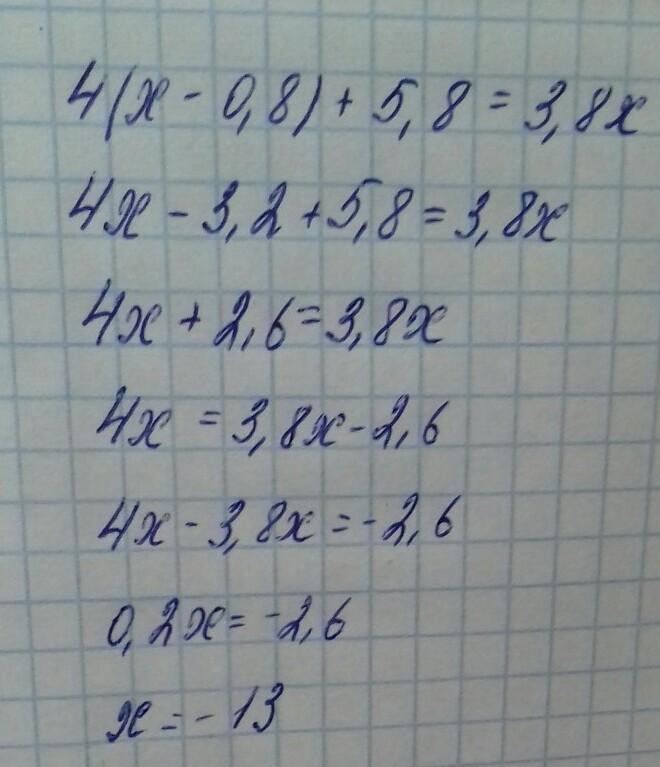 4(x - 0,8) + 5,8 = 3,8x
4x - 3,2 + 5,8 = 3,8x
4x + 2,6 = 3,8x
4x = 3,8x - 2,6
4x - 3,8x = -2,6
0,2x = -2,6
x = -13